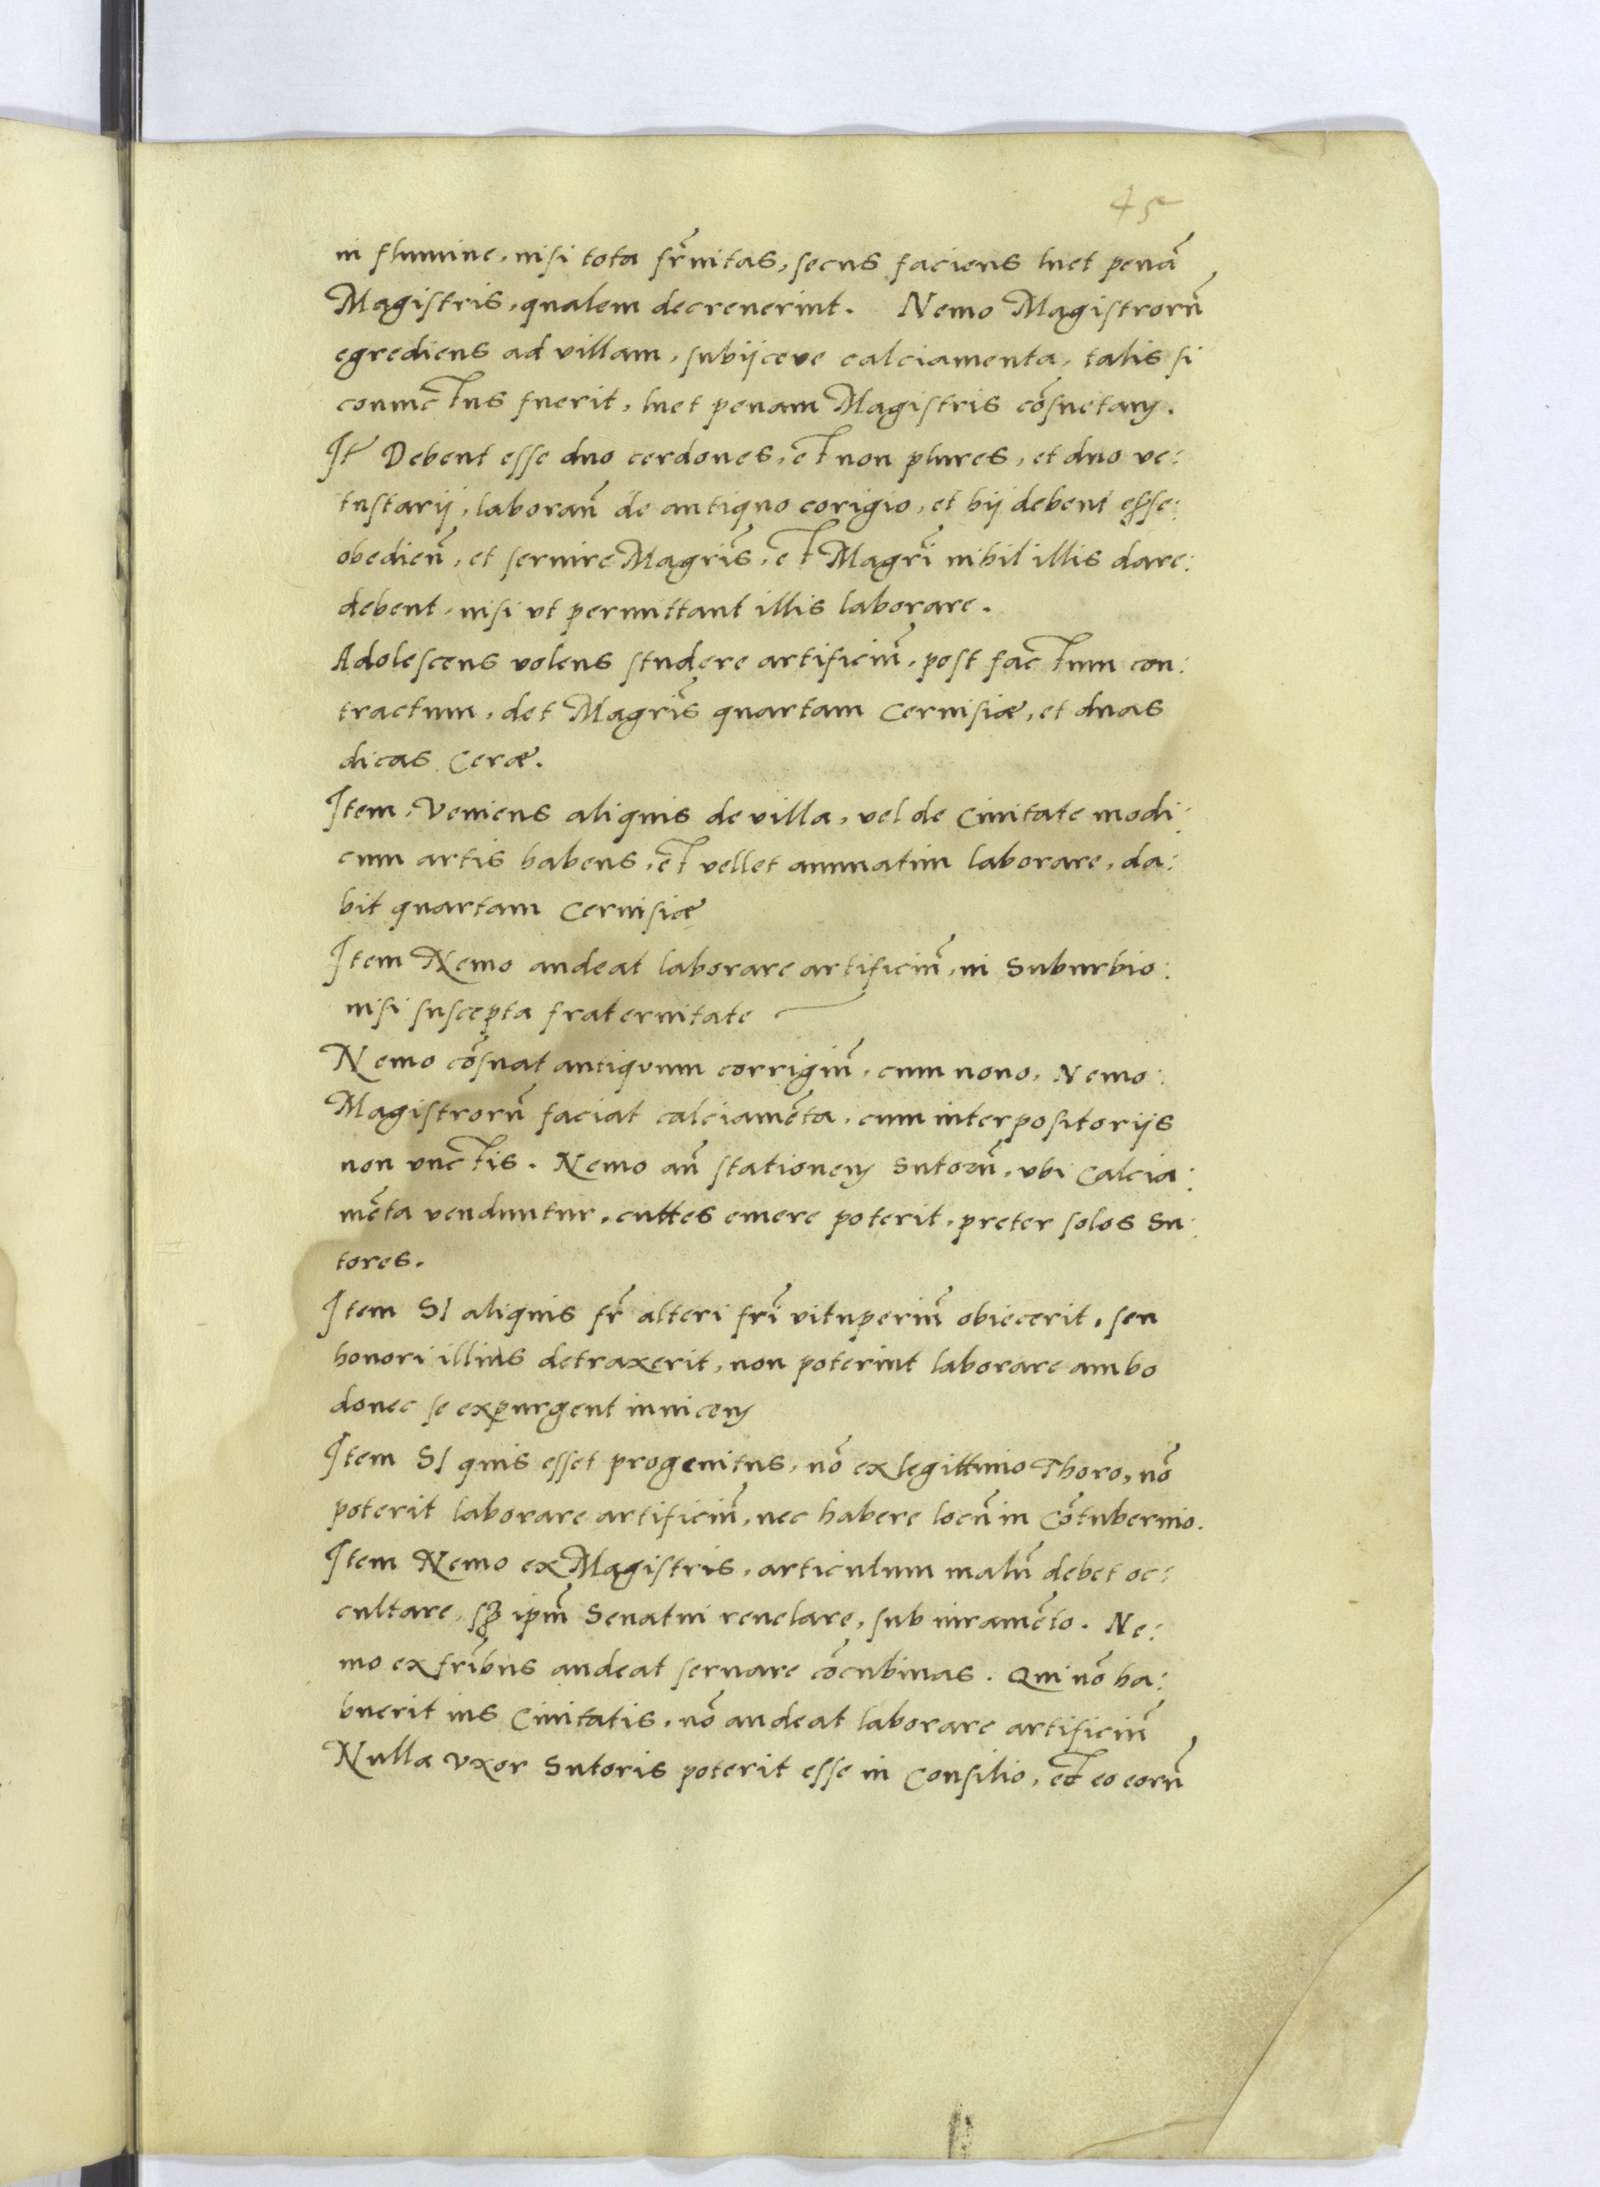 45
in flumine, nisi tota fr̃nitas, secus faciens luet penã
Magistris, qualem decreuerint. Nemo Magistrorũ
egrediens ad villam, subijceve calciamenta, talis si
conuictus fuerit, luet penam Magistris cõsuetam.
It Debent esse duo cerdones, et non plures, et duo ve:
tustarij, laborañ de antiquo corigio, et hij debent esse:
obedieñ, et seruire Magrĩs, et Magrĩ nihil illis dare:
debent, nisi vt permittant illis laborare.
Adolescens volens studere artificiũ, post factum con:
tractum, det Magrĩs quartam Ceruisiæ, et duas
dicas Ceræ.
Item, Veniens aliquis de villa, vel de Ciuitate modi:
cum artis habens, et vellet annuatim laborare, da:
bit quartam Ceruisiæ
Item Nemo audeat laborare artificiũ, in Suburbio:
nisi suscepta fraternitate
Nemo cõsuat antiquum corrigiũ, cum nouo, Nemo:
Magistrorũ faciat calciamẽta, cum interpositorijs
non vnctis. Nemo añ stationem Sutorũ, vbi Calcia:
mẽta venduntur, cuttes emere poterit, preter solos Su:
tores.
Item SI aliquis fr̃ alteri frĩ vituperiũ obiecerit, seu
honori illius detraxerit, non poterint laborare ambo
donec se expurgent inuicem
Item SI quis esset progenitus, nõ ex legittimo Thoro, nõ
poterit laborare artificiũ, nec habere locũ in Cõtubernio.
Item Nemo ex Magistris, articulum malũ debet oc:
cultare, sꝫ ipm̃ Senatui reuelare, sub iuramẽto. Ne:
mo ex frĩbus audeat seruare cõcubinas. Qui nõ ha:
buerit ius Ciuitatis, nõ audeat laborare artificiũ
Nulla Vxor Sutoris poterit esse in Consilio, et eo eorũ